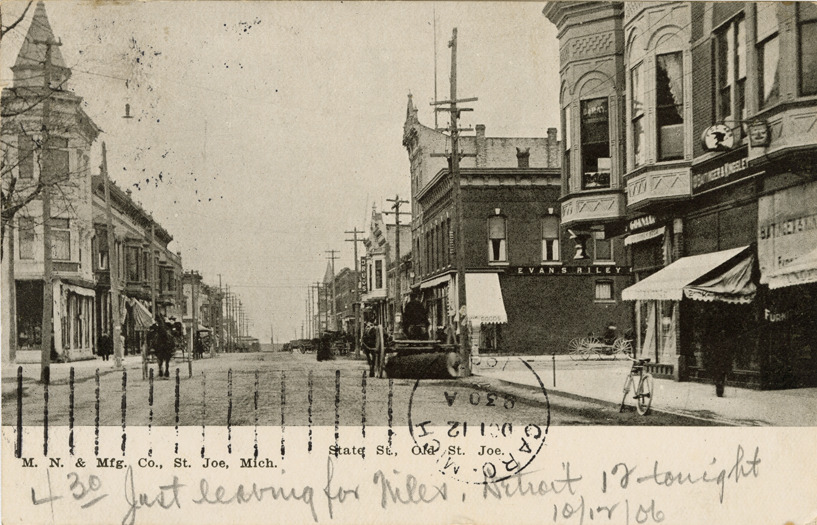 EVANS RILEY
State St., Old St. Joe.
M. N. & Mfg. Co., St. Joe, Mich.
CARO. MICH
OCT 12
930A
4 30 Just leaving for Niles, Detroit 12 tonight
10/12/06